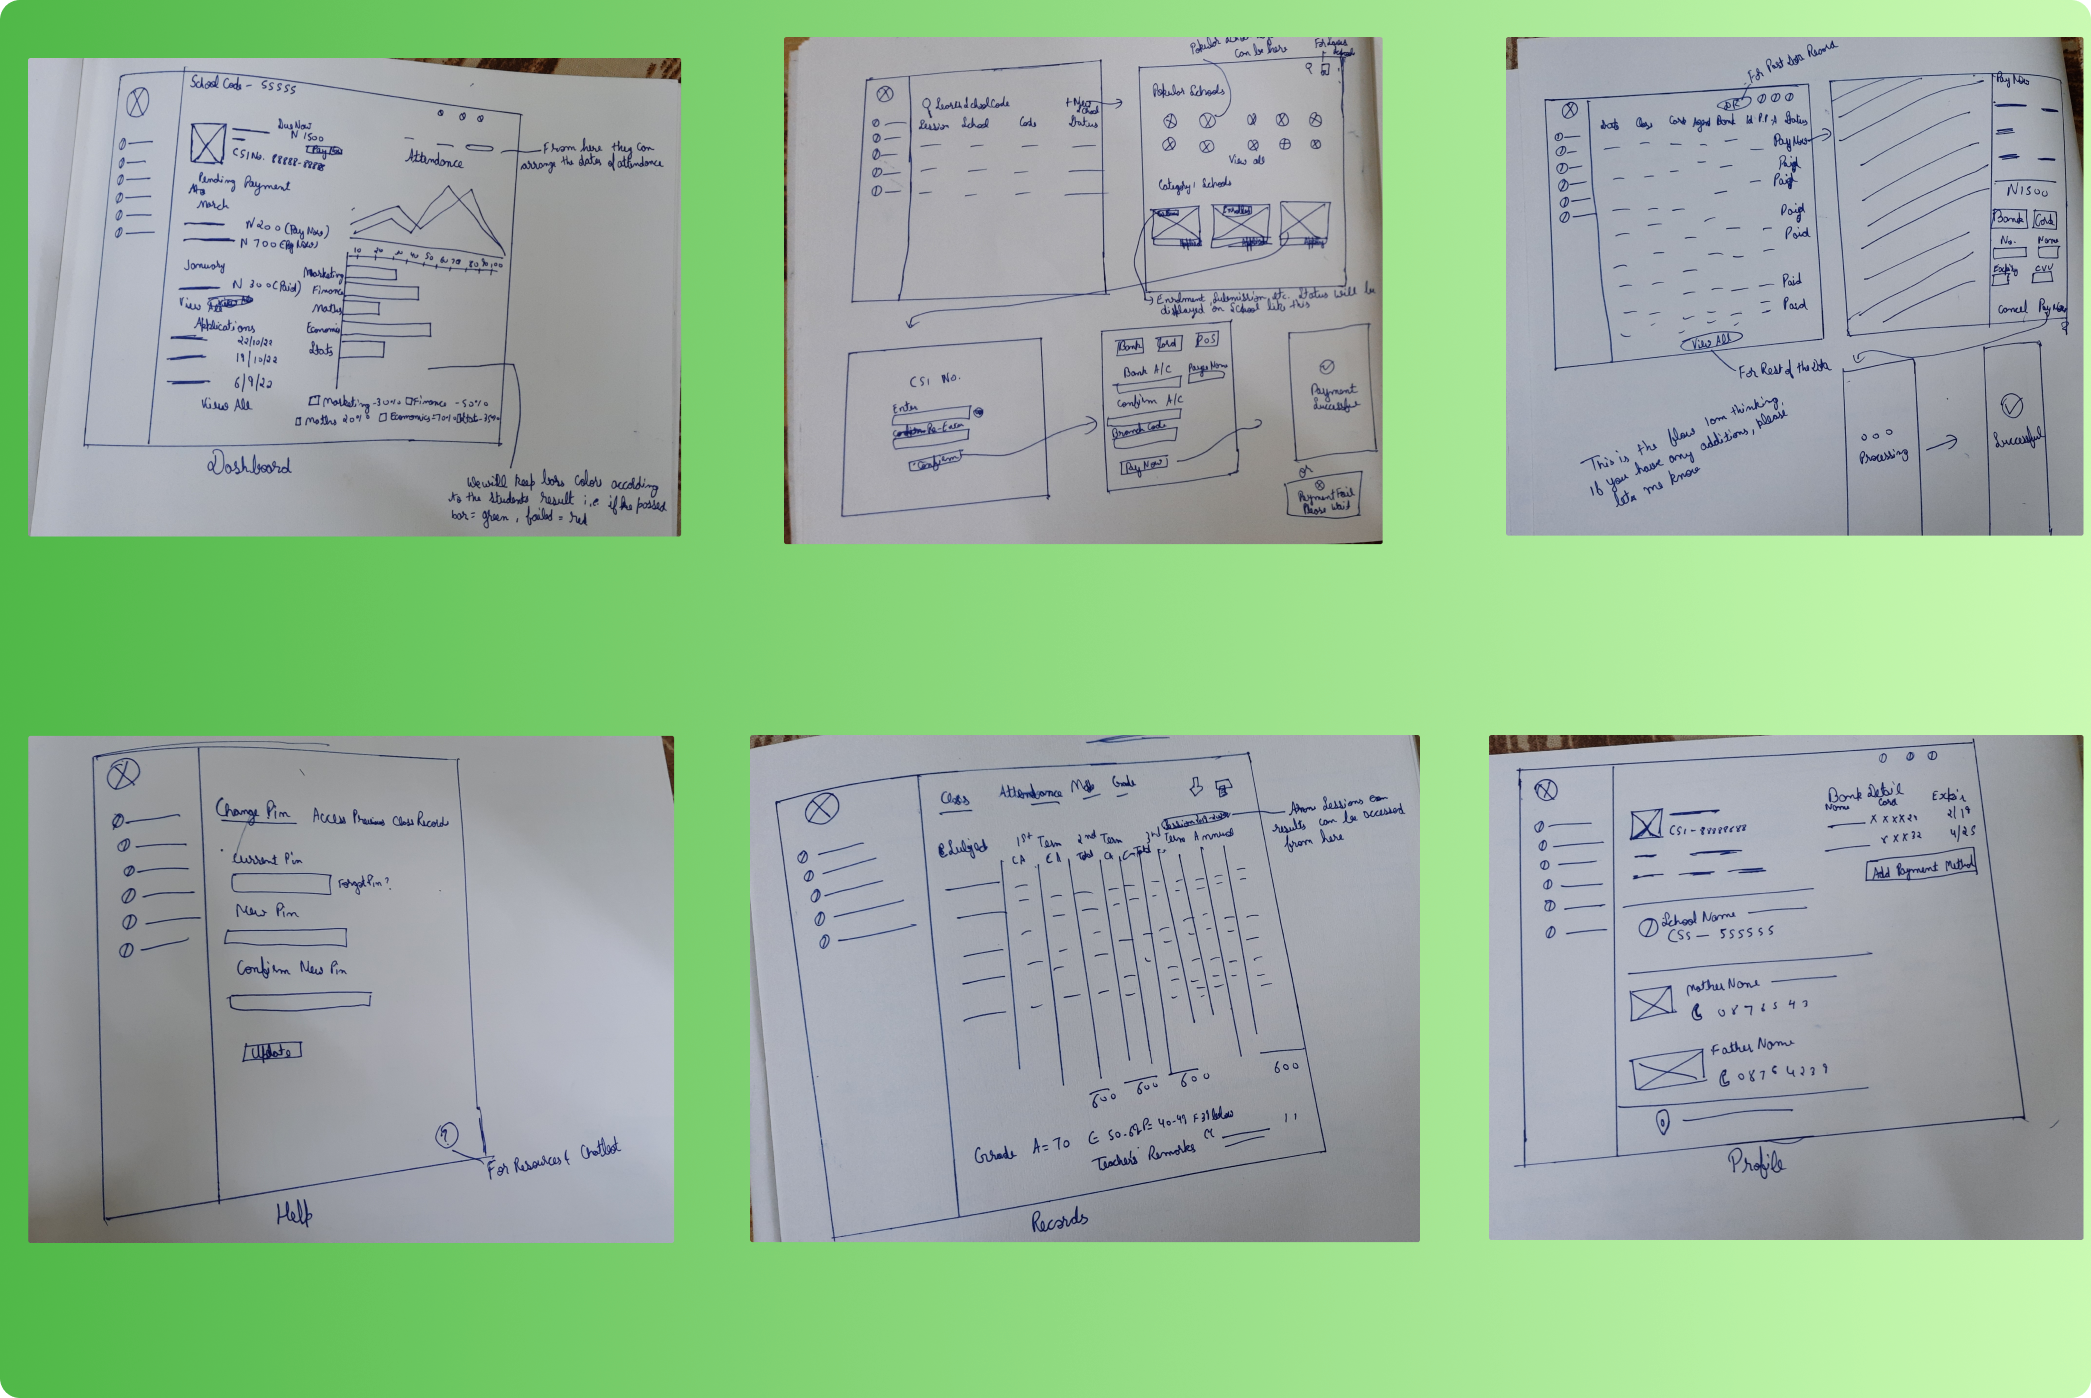 School Code - 55555
Due Now
N 1500
Pay Now
CSI No. 88888-8888
Attendance
From here they can
arrange the dates of attendance
Pending Payment
March
N 200 (Pay Now)
N 700 (Pay Now)
January
N 300 (Paid)
View
Applications
22/10/22
19/10/22
6/9/22
View All
10 20 40 50 60 70 80 90 100
Marketing
Finance
Maths
Economics
Stats
Marketing - 30% Finance - 50%
Maths 20% Economics = 70%
Dashboard
We will keep bars color according
to the students result i.e if the passed
bar = green, failed = red
can be here
Search School Code
+ New
School
Session School Code Status
Popular Schools
View all
Category: Schools
Enrolled
Enrolment, Submission, Etc. Status will be
displayed on School like this
CSI No.
Enter
Re-Enter
Confirm
Bank Card POS
Bank A/C Payee Name
Confirm A/C
Branch Code
Pay Now
Payment
Successful
or
Payment Fail
Please Wait
For Past Record
Date Class Card Agent Bank Id Status
Pay Now
Paid
Paid
Paid
Paid
Paid
Paid
View All
For Rest of the Data
Pay Now
N1500
Bank Card
No. Name
Expiry CVV
Cancel Pay Now
Processing
Successful
This is the flow I am thinking,
if you have any additions, please
let me know
Change Pin Access Previous Class Record
Current Pin
Forgot Pin?
New Pin
Confirm New Pin
Update
?
For Resources & Chatbot
Help
Class Attendance Grade
Subject 1st Term 2nd Term 3rd Term Annual
CA CA Total CA Total
sessions
results can be accessed
from here
600 600 600 600
Grade A = 70
Teacher's Remarks
Records
CSI - 88888888
Bank Detail
Name Card Expir
XXXX21 2/19
XXX32 4/25
Add Payment Method
School Name
CSS - 555555
Mother Name
0876543
Father Name
08764239
Profile